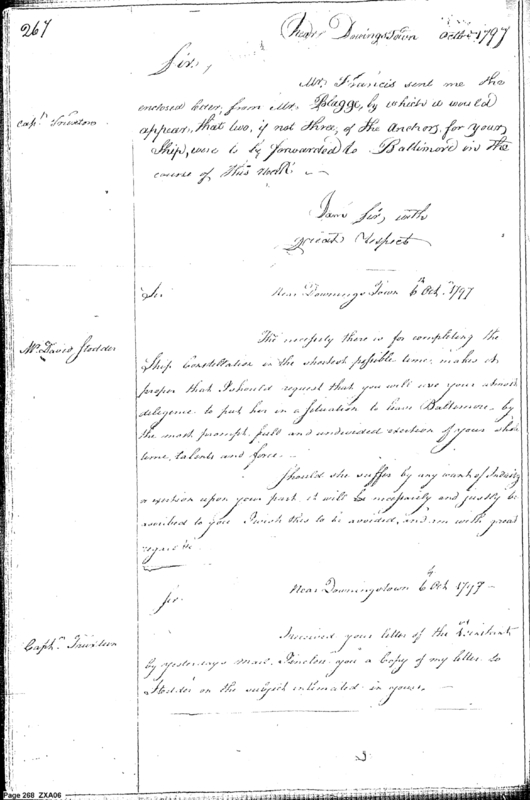 267
Near Downingstown Octr 1797
Sir,
Mr. Francis sent me the
enclosed letter from Mr. Blagge, by which it would
Captn Truxton
appear, that two, if not three, of the Anchors for your
Ship, were to be forwarded to Baltimore in the
course of this week.
I am Sir, with
great respect
Sir
Near Downings Town 6th Octr 1797
Mr. David Stodder
The necessity there is for completing the
Ship Constellation in the shortest possible time, makes it
proper that I should request that you will use your utmost
diligence to put her in a situation to leave Baltimore, by
the most prompt, full and undivided exertion of your whole
time, talents and force.
Should she suffer by any want of Industry
or exertion upon your part it will be necessarily and justly be
ascribed to you I wish this to be avoided, and am with great
regard &c
Near Downingstown 6th Octr 1797
Sir.
Captn. Truxtun
I received your letter of the instant
by yesterdays mail. I inclose you a copy of my letter to
Stodder on the subject intimated in yours.
Page 268 ZXA06